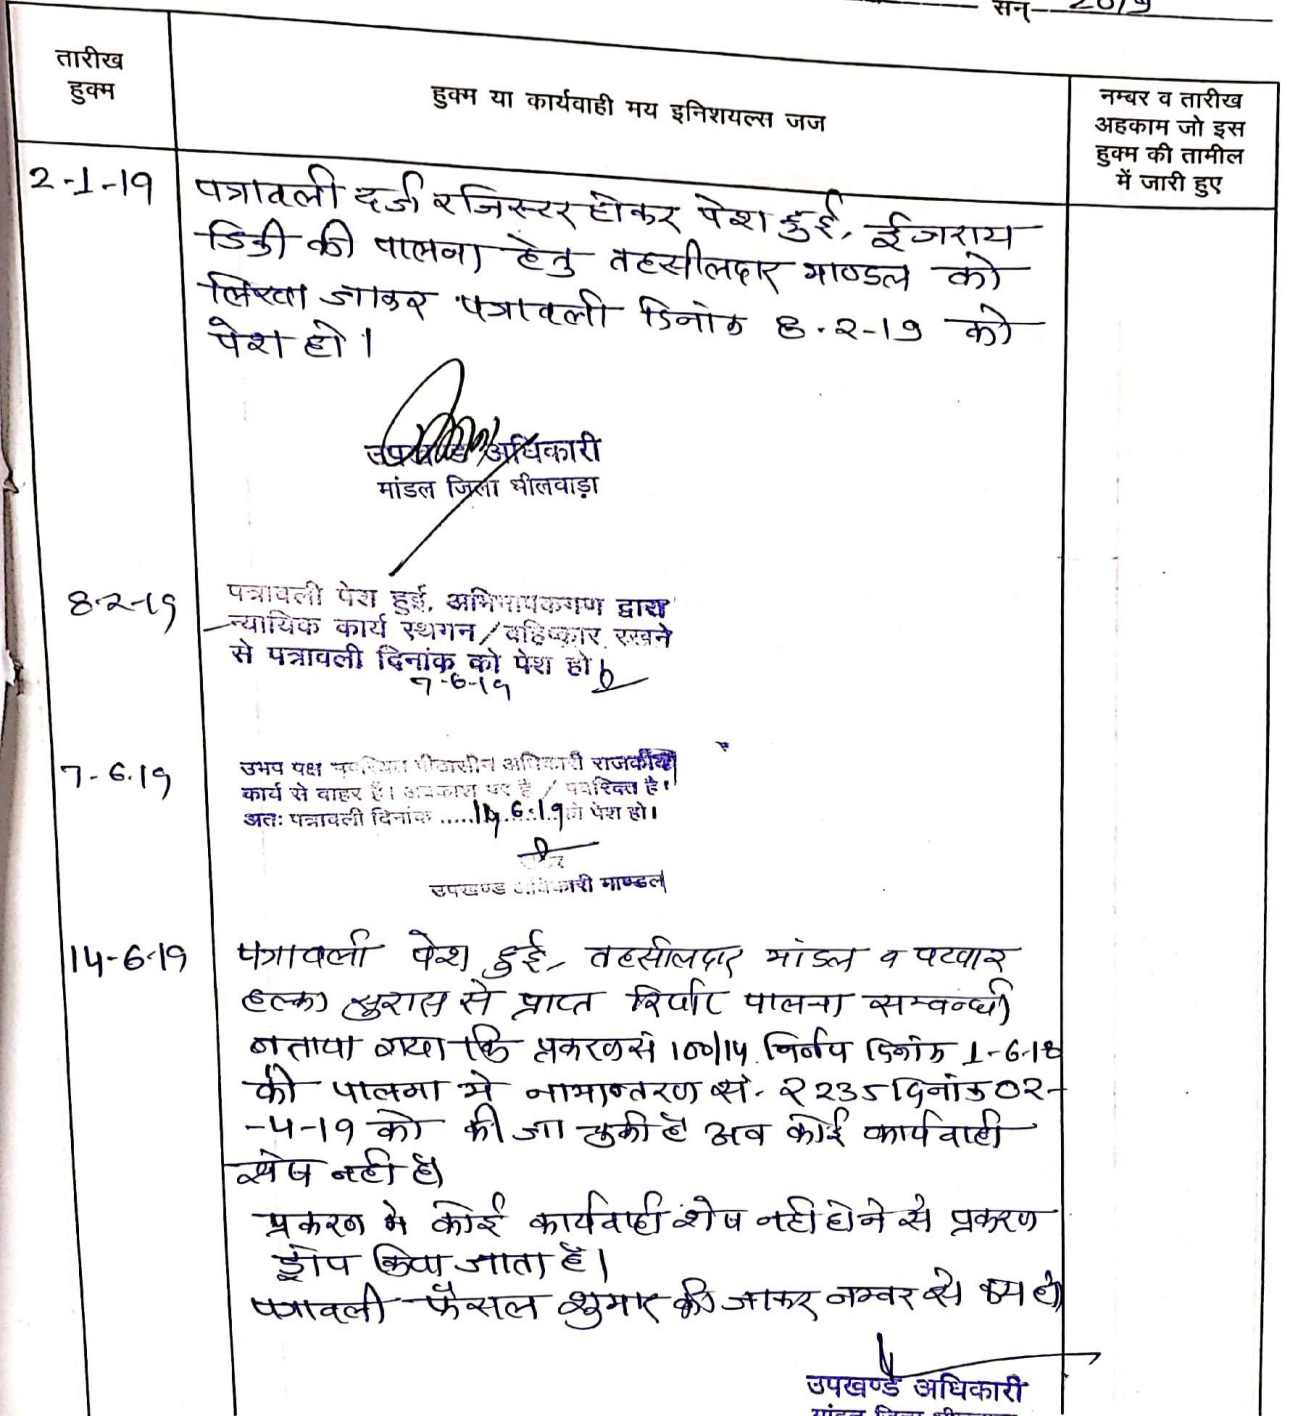 सन् 2019
तारीख
हुक्म
हुक्म या कार्यवाही मय इनिशयल्स जज
नम्बर व तारीख
अहकाम जो इस
हुक्म की तामील
में जारी हुए
2-1-19
पत्रावली दर्ज रजिस्टर होकर पेश हुई, ईजराय
डिक्री की पालना हेतु तहसीलदार माण्डल को
लिखा जाकर पत्रावली दिनांक 8-2-19 को
पेश हो।
उपखण्ड अधिकारी
मांडल जिला भीलवाड़ा
8-2-19
पत्रावली पेश हुई, अभिभाषकगण द्वारा
न्यायिक कार्य स्थगन/बहिष्कार रखने
से पत्रावली दिनांक को पेश हो
7-6-19
7-6-19
उभय पक्ष पीठासीन अधिकारी राजकीय
कार्य से बाहर है। अवकाश पर है /
अतः पत्रावली दिनांक .....14.6.19 को पेश हो।
उपखण्ड अधिकारी माण्डल
14-6-19
पत्रावली पेश हुई, तहसीलदार मांडल व पटवार
हल्का से प्राप्त रिर्पोट पालना सम्बन्धी
बताया गया कि प्रकरण सं 100/14 निर्णय दिनांक 1-6-18
की पालना मे नामान्तरण सं. 2235 दिनांक 02-
-4-19 को की जा चुकी है अब कोई कार्यवाही
शेष नही है।
प्रकरण मे कोई कार्यवाही शेष नही होने से प्रकरण
ड्रोप किया जाता है।
पत्रावली फैसल शुमार की जाकर नम्बर से कम हो
उपखण्ड अधिकारी
मांडल जिला